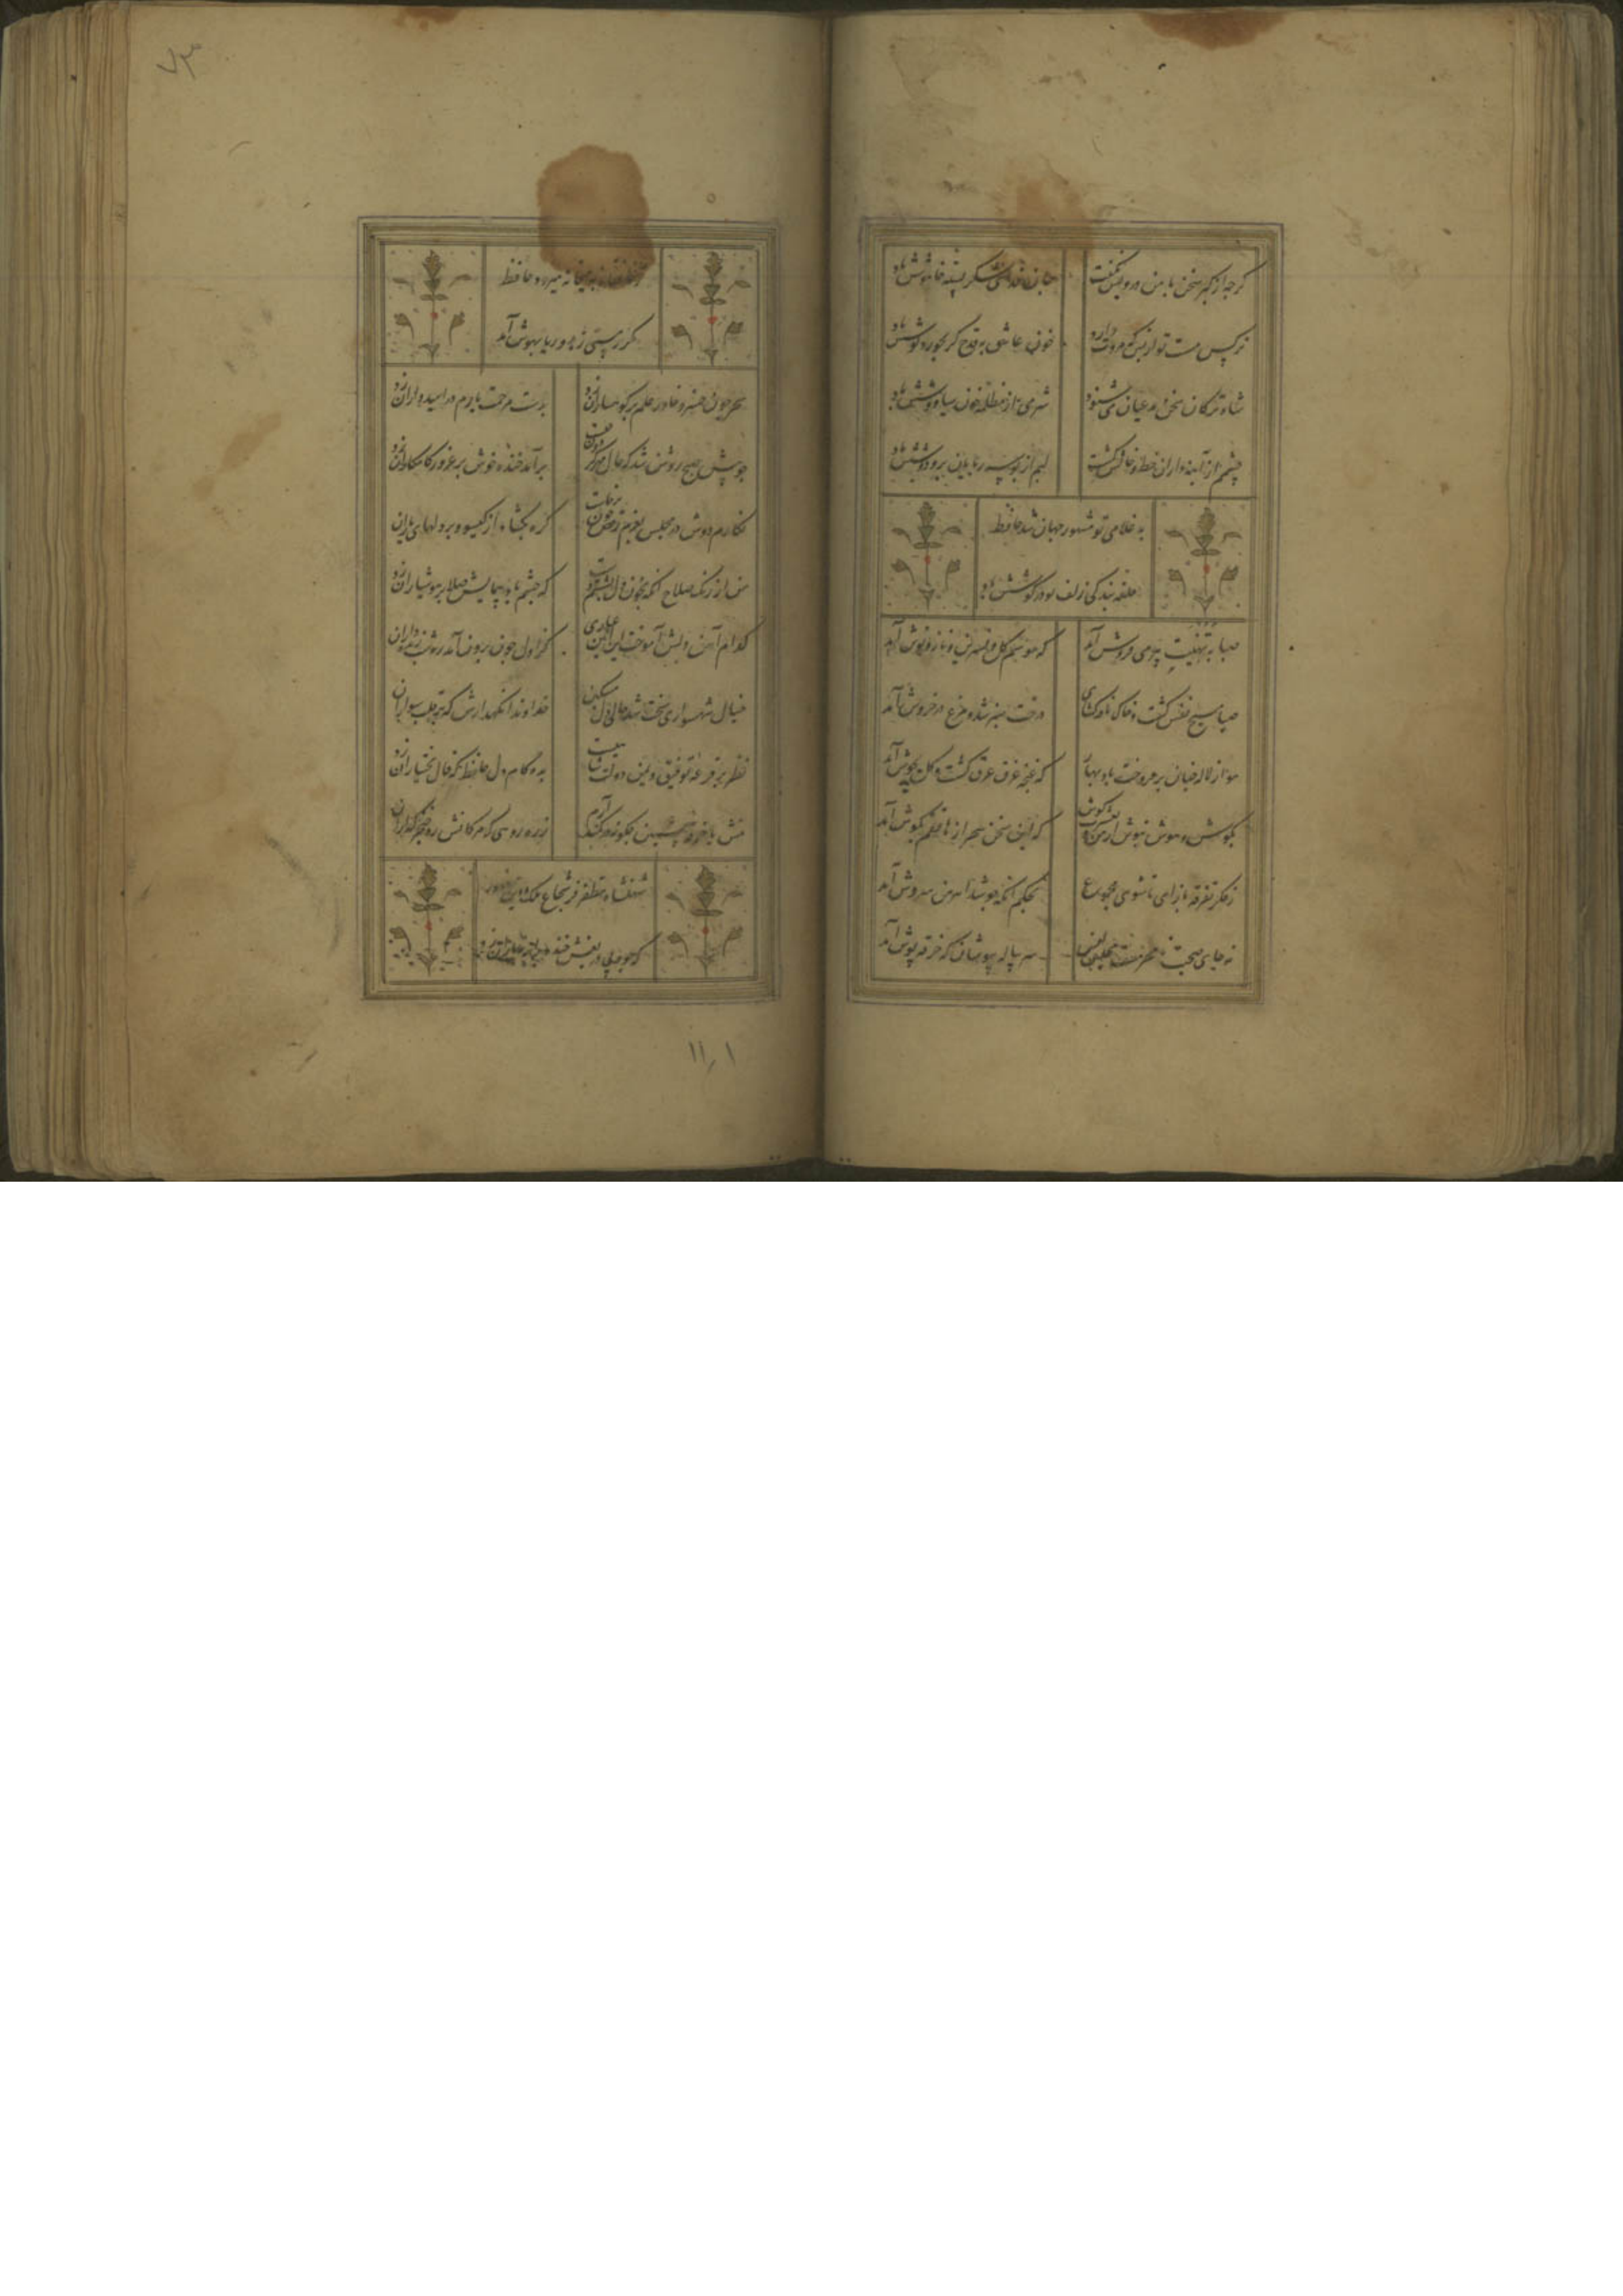 گرچه از کبر سخن با من درویش نگفت
جان فدای شکر پسته خاموشش باد
نرگس مست تو از بس که مروت دارد
خون عاشق به قدح گر بخورد نوشش باد
شاه ترکان سخن مدعیان می شنود
شرمی از مظلمه خون سیاووشش باد
چشمم از آینه داران خط و خالش گشت
لبم از بوسه ربایان بر و دوشش باد
به غلامی تو مشهور جهان شد حافظ
حلقه بندگی زلف تو در گوشش باد
صبا به تهنیت پیر می فروش آمد
که موسم گل و نسرین و ناز و نوش آمد
صبا مسیح نفس گشت و خاک نافه گشای
درخت سبز شد و مرغ در خروش آمد
هوا ز لاله چنان بر فروخت باد بهار
که غنچه غرق عرق گشت و گل بجوش آمد
بگوش هوش نیوش از من و بعشرت کوش
که این سخن سحر از هاتفم بگوش آمد
ز فکر تفرقه باز آی تا شوی مجموع
بحکم آنکه چو شد اهرمن سروش آمد
نه جای صحبت نامحرمست مجلس انس
سر پیاله بپوشان که خرقه پوش آمد
ز خانقاه به میخانه میرود حافظ
مگر ز مستی زهد و ریا بهوش آمد
سحر چون خسرو خاور علم بر کوهساران زد
بدست مرحمت یارم در امیدواران زد
چو پیش صبح روشن شد که حال مهر گردون چیست
برآمد خنده خوش بر غرور کامکاران زد
نگارم دوش در مجلس بعزم رقص چون برخاست
گره بگشاد از گیسو و بر دلهای یاران زد
من از رنگ صلاح آنگه بخون دل بشستم دست
که چشم باده پیمایش صلا بر هوشیاران زد
کدام آهن دلش آموخت این آیین عیاری
کز اول چون برون آمد ره شب زنده داران زد
خیال شهسواری پخت و شد حالی دل مسکین
خداوندا نگهدارش که بر قلب سواران زد
نظر بر قرعه توفیق و یمن دولت شاهست
بده کام دل حافظ که فال بختیاران زد
منش با خرقه پشمین چگونه در کمند آرم
زره مویی که مژگانش ره خنجر گذاران زد
شهنشاه مظفر فر شجاع ملک و دین منصور
که جود بی دریغش خنده بر ابر بهاران زد
۱۱٫۱